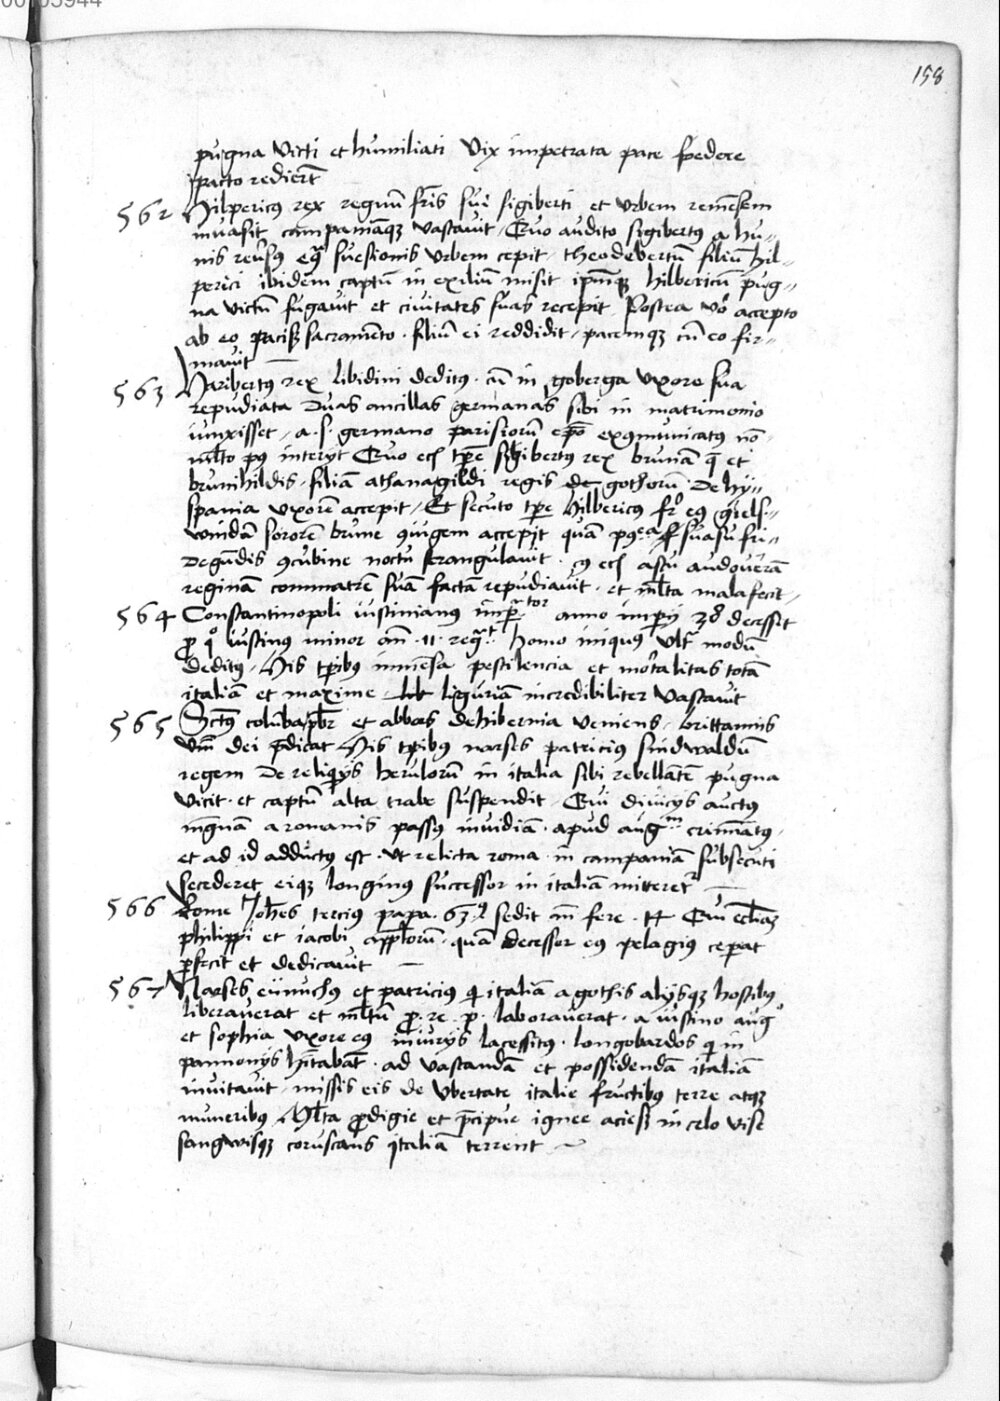 158
pugna victi et humiliati vix impetrata pace foedere
pacto redierūt
562 Hilpericus rex regnū fr̄is sui sigiberti et urbem remēsem
invasit campaniāq; vastavit / Quo audito sigibertus a hu-
nis rev̄sus suesionis urbem cepit / theodebertum filiū hil-
perici ibidem captū in exiliū misit ip̄mq; hilbericū pug-
na victū fugavit et civitates suas recepit / Postea v̊o accepto
ab eo pacis sacramēto . filiū ei reddidit / pacemq; cū eo fir-
mavit
563 Haribertus rex libidini deditus . cū in goberga uxore sua
repudiata duas ancillas germanas sibi in matrimonio
iunxisset / a . s . germano parisiorū ep̄o exgmunicatus nō
ml̄to pꝰ interijt Quo tp̄e sigibertus rex brunā q̄ et
brunihildis / filiā athanagildi regis de gothorū De hy-
spania uxorē accepit / Et secuto tp̄e hilbericus fr̄ eꝰ giels-
windā sororē brune giugem accepit quā suasu fri-
degūdis gcubine noctu strangulavit . astu audoverā
reginā commatrē suā factā repudiavit . et ml̄ta mala fecit /
564 Constantinopoli iustinianus imp̄ator anno imperij 38 decessit
p̄ q̊ iustinus minor an̄ . 11 . reg̅t homo iniquus ult̄ modū
deditus / His tp̄ibus inmēsa pestilencia et mortalitas totā
italiā et maxime liguriam incredibiliter vastavit
565 Sctūs colūba p̄br et abbas de hibernia veniens / brittannis
v̄m dei p̄dicat His tp̄ibus narses patricius sindwaldū
regem De reliquijs herulorū in italia sibi rebellātē pugna
vicit . et captū alta trabe suspendit / Qui divicijs auctus
magnā a romanis passus invidiā . apud augm crimīatus /
et ad id adductus est . ut relicta roma . in campaniā subsecuti
secederet eiq; longinus successor in italiā mitteret
566 Rome Joh̄es tercius papa . 63 sedit an̄ fere . 14 Qui eccl̄iaʒ
philippi et iacobi appl̄orū . quā decessor eꝰ pelagius ceperat
p̄fecit et dedicavit
567 Narses eunuchus et patricius q̄ italiā a gothis alijsq; hostibus
liberaverat et ml̄tū p̄ . re . p . laboraverat . a iustino augꝰ
et sophia uxore eꝰ iniurijs lacessitus . longobardos q̄ in
pannonijs habitabāt . ad vastandā et possidendā italiā
invitavit / missis eis de ubertate italie fructibus terre atq;
muneribus Ml̄ta p̄digie et p̄cipue ignee acies in celo vise
sangwisq; coruscans italiā terrent